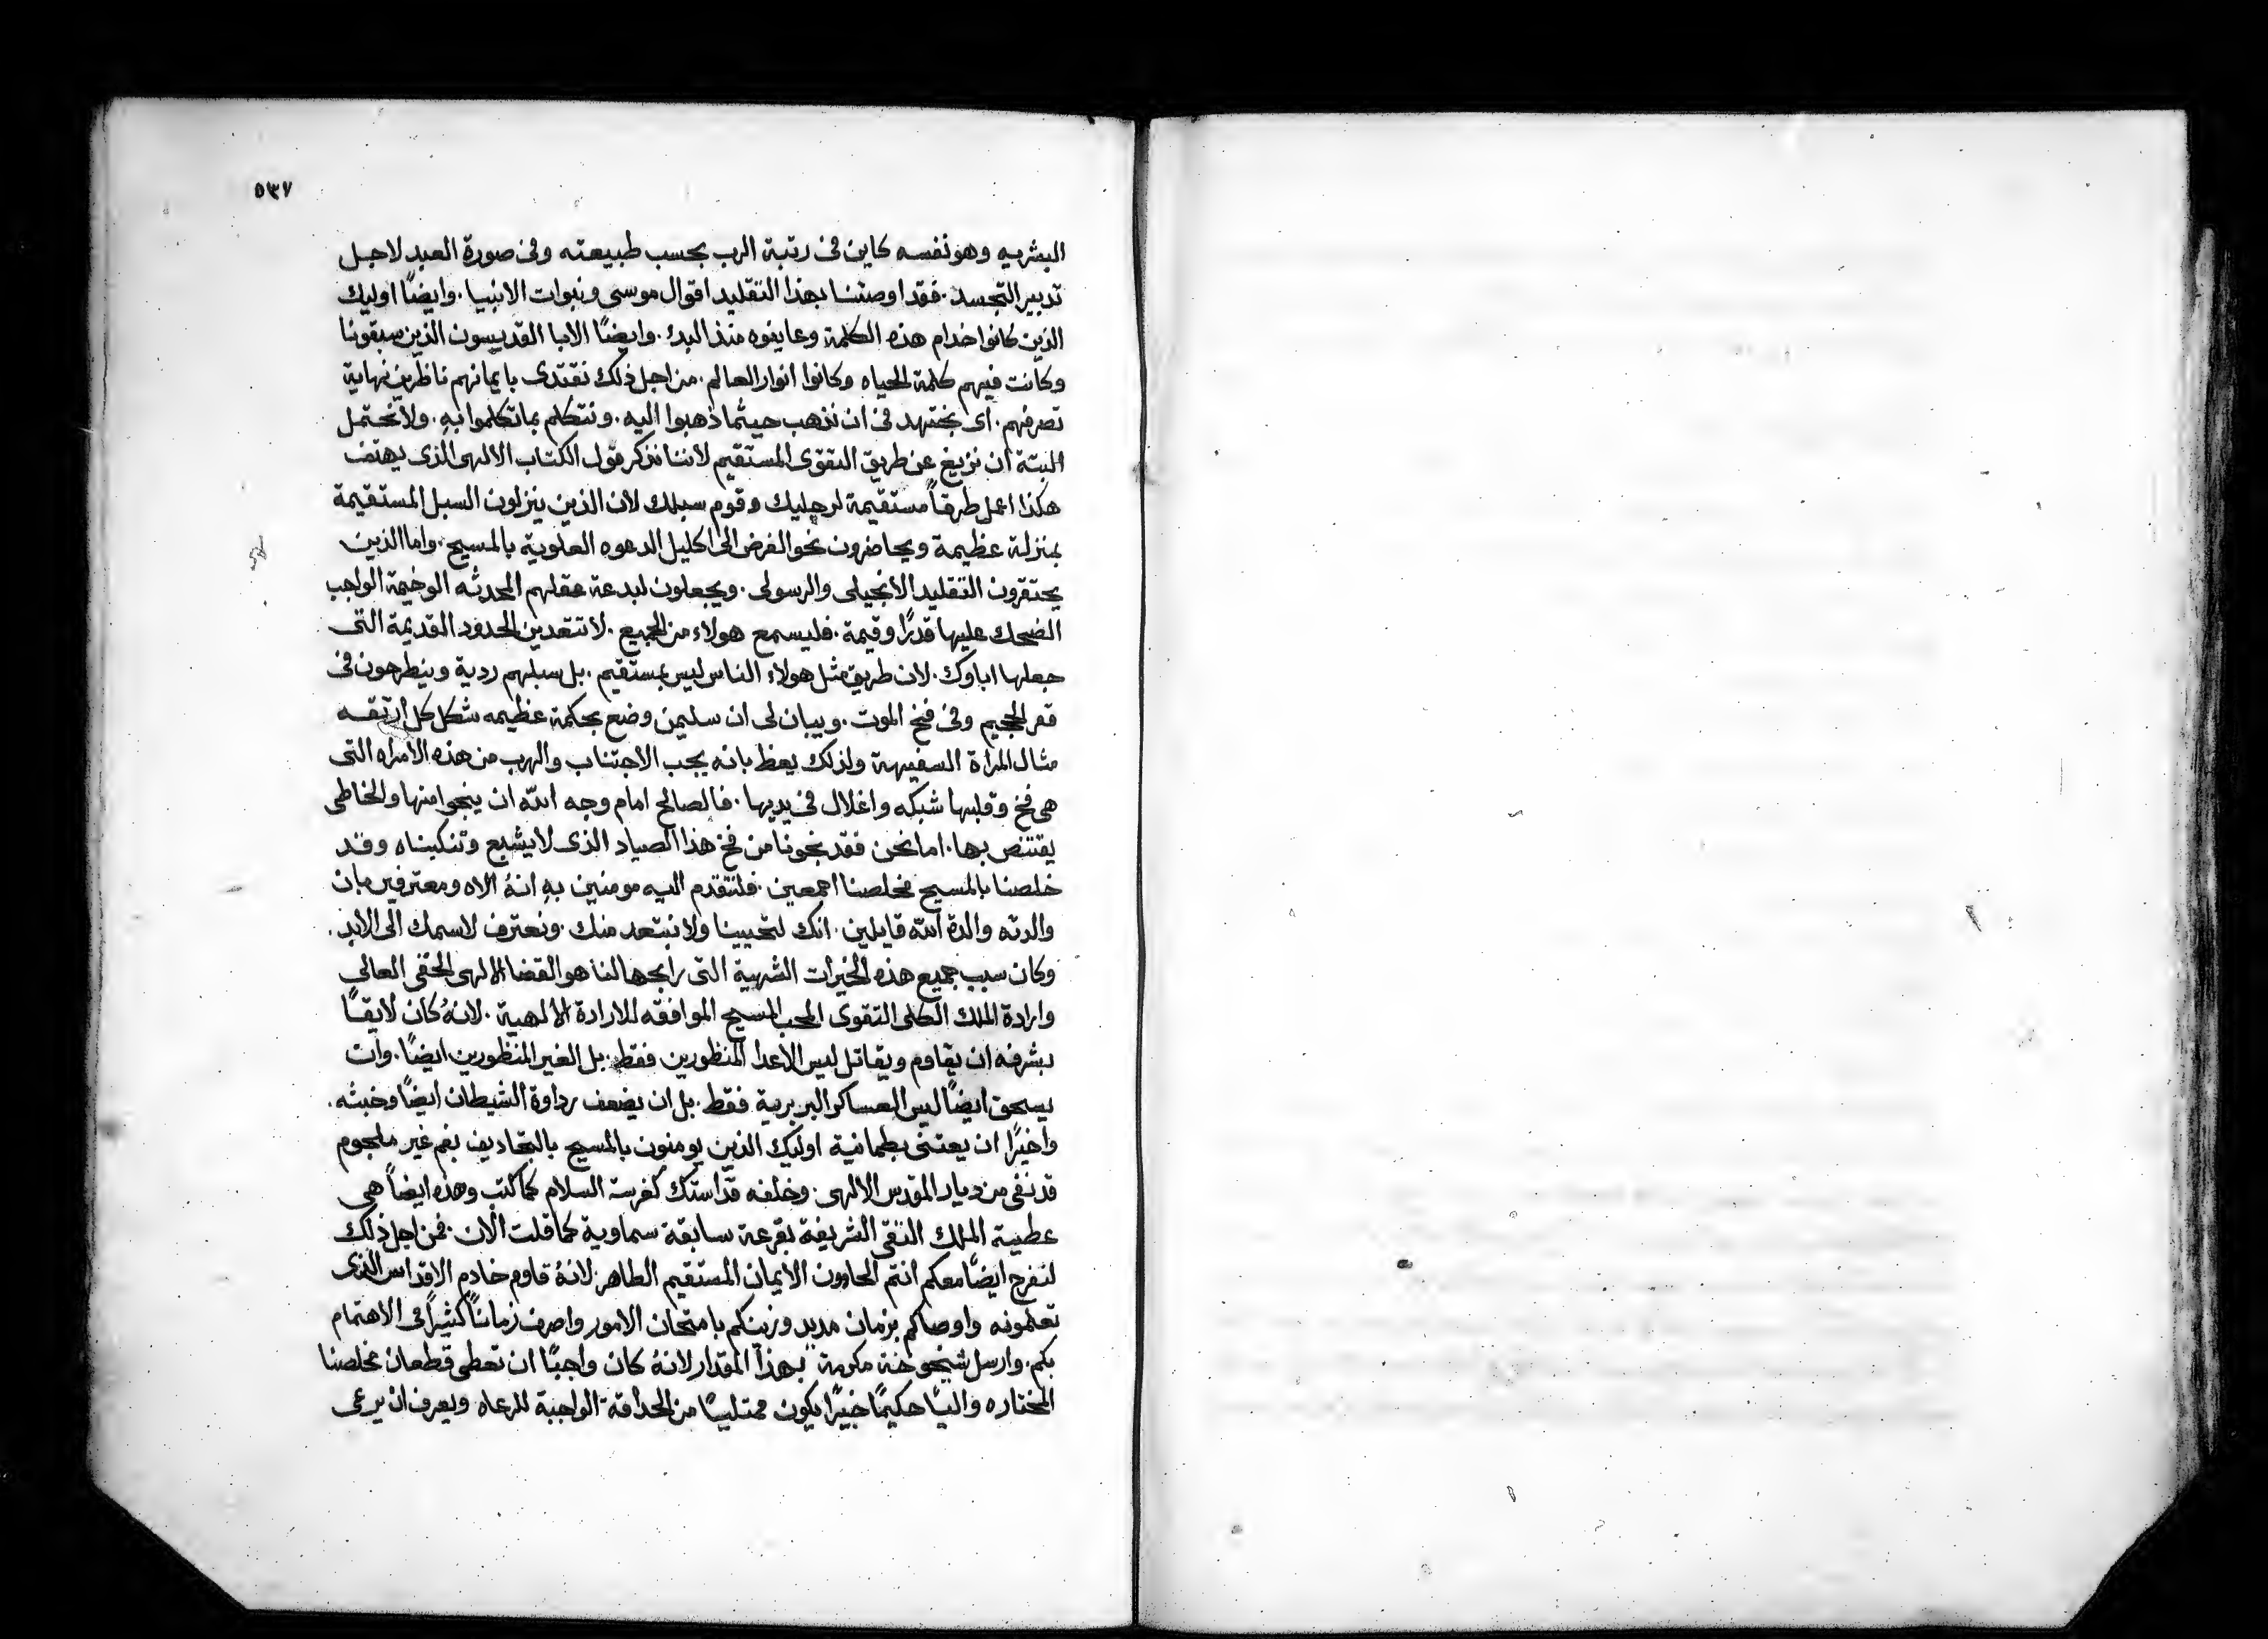 ٥٣٧
البشريه وهو نفسه كاين فى رتبة الرب بحسب طبيعته وفى صورة العبد لاجل
تدبير التجسد . فقد اوصتنا بهذا التقليد اقوال موسى ونبوات الانبيا . وايضًا اوليك
الذين كانوا خدام هذه الكلمة وعاينوه منذ البدء . وايضًا الابا القديسون الذين سبقونا
وكانت فيهم كلمة الحياه وكانوا انوار العالم . من اجل ذلك نقتدى بايمانهم ناظرين نهاية
تصرفهم . اى نجتهد فى ان نذهب حيثما ذهبوا اليه . ونتكلم بما تكلموا به . ولا نحتمل
البتة ان نزيغ عن طريق التقوى المستقيم لاننا نذكر قول الكتاب الالهى الذى يهتف
هكذا اعمل طرقاً مستقيمة لرجليك وقوم سبلك لان الذين ينزلون السبل المستقيمة
بمنزلة عظيمة ويحاضرون نحو الغرض الى اكليل الدعوه العلوية بالمسيح . واما الذين
يحتقرون التقليد الانجيلى والرسولى . ويجعلون لبدعة عقلهم المحدثه الوخيمة الواجب
الضحك عليها قدرًا وقيمة . فليسمع هولاء من الجميع . لا تتعدين الحدود القديمة التى
جعلها اباوك . لان طريق مثل هولاء الناس ليس بمستقيم . بل سبلهم ردية وينطرحون فى
قعر الجحيم وفى فخ الموت . ويبان لى ان سليمن وضع بحكمة عظيمه شكل كل ارتقه
مثال المراة السفيهة ولذلك يعظ بانه يجب الاجتناب والهرب من هذه الامراه التى
هى فخ وقلبها شبكه واغلال فى يديها . فالصالح امام وجه الله ان ينجوا منها والخاطى
يقتنص بها . اما نحن فقد نجونا من فخ هذا الصياد الذى لا يشبع وتنكيناه وقد
خلصنا بالمسيح مخلصنا اجمعين . فلنتقدم اليه مومنين به انهُ الاه ومعترفين بان
والدته والدة الله قايلين . انك لتحيينا ولا نبتعد منك . ونعترف لاسمك الى الابد .
وكان سبب جميع هذه الخيرات الشهية التى رابجها لنا هو القضا الالهى الحقى العالى
وارادة الملك الكلى التقوى المحب المسيح الموافقه للارادة الالهية . لانهُ كان لايقًا
بشرفه ان يقاوم ويقاتل ليس الاعدا المنظورين فقط . بل الغير المنظورين ايضًا . وان
يسحق ايضًا ليس العساكر البربرية فقط . بل ان يضعف رداوة الشيطان ايضًا وخبثه .
واخيرًا ان يعتنى بطمانية اوليك الذين يومنون بالمسيح بالتجاديف بفم غير ملجوم
قد نفى من ديار المقدس الالهى . وخلفه قداستك كغرسة السلام كما كتب وهذه ايضاً هى
عطية الملك التقى الشريفة بقرعة سابقة سماوية كما قلت الان . فمن اجل ذلك
لنفرح ايضًا معكم انتم الحاوون الايمان المستقيم الطاهر لانهُ قاوم خادم الاقداس الذى
تعلمونه واوصاكم بزمان مديد وزينكم بامتحان الامور واصرف زمانًا كثيرًا فى الاهتمام
بكم . وارسل شيخوخة مكرمة بهذا المقدار لانهُ كان واجبًا ان تعطى قطعان مخلصنا
المختاره واليًا حكيمًا خبيرًا يكون ممتليًا من الحداقة الواجبة للرعاه ويعرف ان يرعى